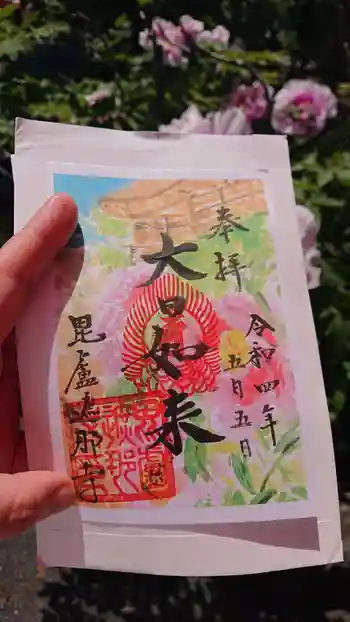 奉拝
令和四年
五月五日
大日如来
毘盧遮那寺